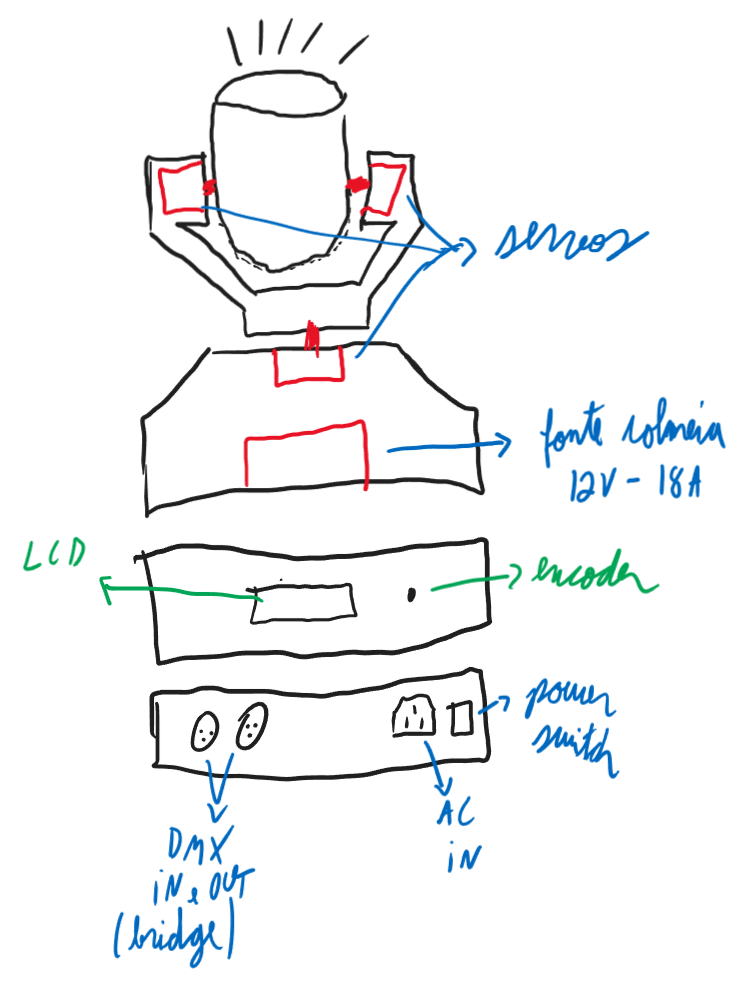 servos
fonte colmeia
12V - 18A
LCD
encoder
power
switch
DMX
iN e OUT
(bridge)
AC
iN